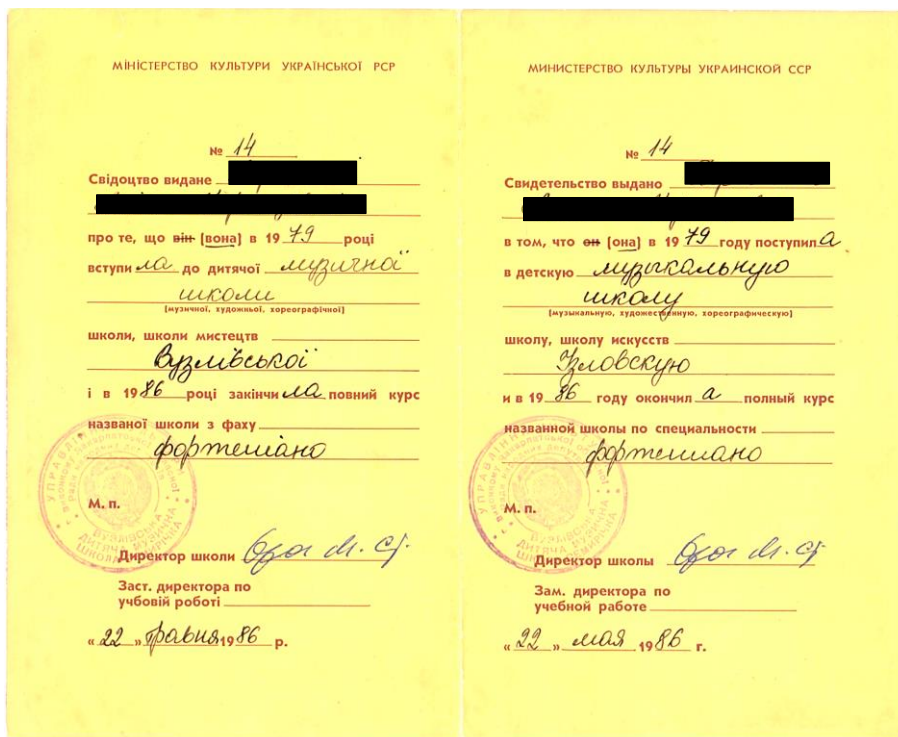 МІНІСТЕРСТВО КУЛЬТУРИ УКРАЇНСЬКОЇ РСР
№ 14
Свідоцтво видане
про те, що він (вона) в 1979 році
вступила до дитячої музичної
школи
(музичної, художньої, хореографічної)
школи, школи мистецтв
Вузлівської
і в 1986 році закінчила повний курс
названої школи з фаху
фортепіано
М. п.
Директор школи
Заст. директора по
учбовій роботі
«22» травня 1986 р.
МИНИСТЕРСТВО КУЛЬТУРЫ УКРАИНСКОЙ ССР
№ 14
Свидетельство выдано
в том, что он (она) в 1979 году поступила
в детскую музыкальную
школу
(музыкальную, художественную, хореографическую)
школу, школу искусств
Узловскую
и в 1986 году окончила полный курс
названной школы по специальности
фортепиано
М. п.
Директор школы
Зам. директора по
учебной работе
«22» мая 1986 г.
ВУЗЛІВСЬКА
ДИТЯЧА МУЗИЧНА